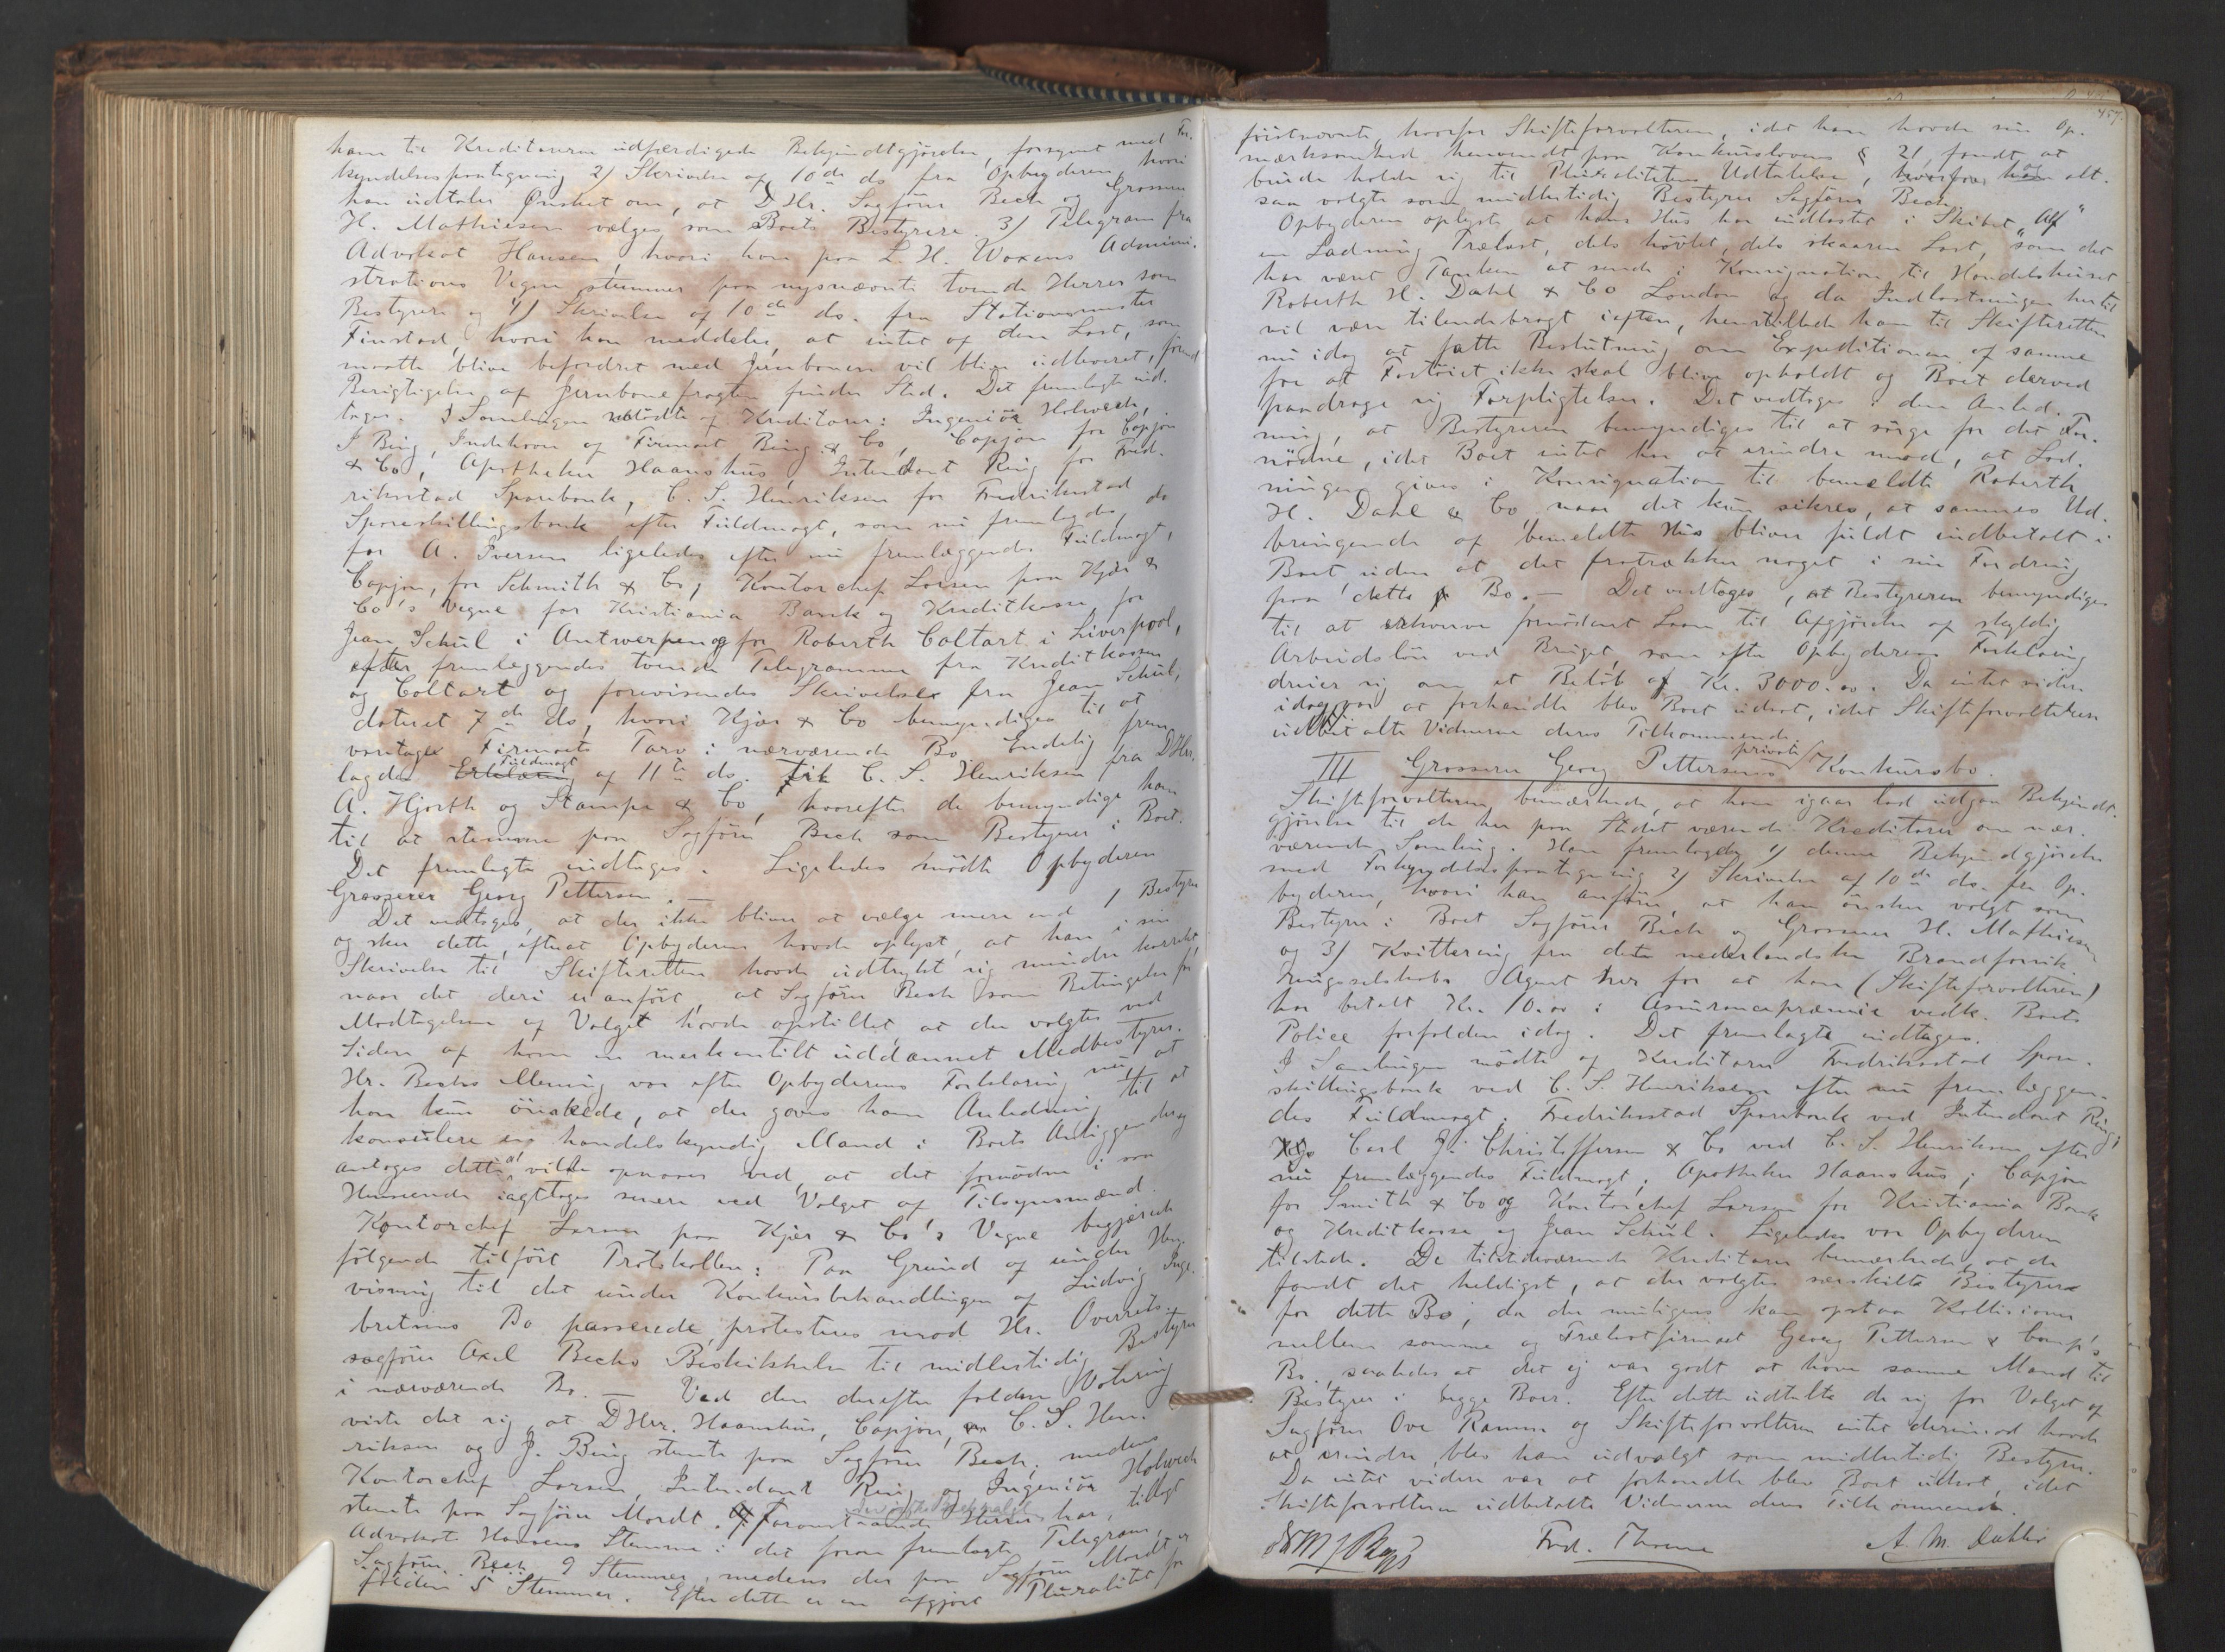 ham til Kreditorerne udfærdigede Bekjendtgjørelse, forsynet med For-
kyndelsespaategning 2) Skrivelse af 10de ds fra Opbyderen, hvori
han udtaler Ønsket om, at DHr. Sagfører Bech og Grosserer
H. Mathiesen vælges som Boets Bestyrere. 3) Telegram fra
Advokat Hansen, hvori han paa L. H. Woxens Admini-
strations Vegne stemmer paa nysnævnte tvende Herrer som
Bestyrere og 4) Skrivelse af 10de ds. fra Stationsmester
Finstad, hvori han meddeler, at intet af den Last, som
maatte blive befordret med Jernbanen vil blive udleveret, førend
Berigtigelse af Jernbanefragten finder Sted. Det fremlagte ind-
tages. I Samlingen mødte af Kreditorer: Ingeniør Holwech,
J Bing, Indehaver af Firmaet Bing & Co, Capjon for Capjon
& Co, Apotheker Haanshus, Intendant Ring for Fred-
riksstad Sparebank, C. S. Henriksen for Fredriksstad
Spareskillingsbank efter Fuldmagt, som nu fremlagdes, do
for A. Iversen ligeledes efter nu fremlæggende Fuldmagt,
Capjon, for Schmith & Co, Kontorchef Larsen paa Kjær &
Co's Vegne for Kristiania Bank og Kreditkasse, for
Jean Schul i Antwerpen og for Roberth Coltart i Liverpool,
efter fremlæggendes tvende Telegrammer fra Kreditkassen
og Coltart og forevisendes Skrivelse fra Jean Schul,
dateret 7de ds, hvori Kjær & Co bemyndiges til at
varetage Firmaets Tarv i nærværende Bo. Endelig frem-
lagdes Erklæring Fuldmagt af 11te ds. til C. S. Henriksen fra DHrr.
A. Hjorth og Stampe & Co, hvorefter de bemyndige ham
til at stemme paa Sagfører Bech som Bestyrer i Boet.
Det fremlagte indtages. Ligeledes mødte Opbyderen
Grosserer Georg Pettersen. —
Det vedtoges, at der ikke bliver at vælge mere end 1 Bestyrer
og sker dette, efterat Opbyderen havde oplyst, at han i sin
Skrivelse til Skifteretten havde udtrykt sig mindre korrekt,
naar det deri er anført, at Sagfører Bech som Betingelse for
Modtagelsen af Valget havde opstillet, at der valgtes ved
Siden af ham en merkantilt uddannet Medbestyrer.
Hr. Bechs Mening var efter Opbyderens Forklaring nu at
han kun ønskede, at der gaves ham Anledning til at
konsulere en handelskyndig Mand i Boets Anliggender og
antoges dette at ville opnaaes ved, at det fornødne i saa
Henseende iagttages senere ved Valget af Tilsynsmænd.
Kontorchef Larsen paa Kjær & Co's Vegne begjærede
følgende tilført Protokollen: Paa Grund af under Hen-
visning til det under Konkursbehandlingen af Ludvig Inge-
bretsens Bo passerede, protesteres mod Hr. Overrets-
sagfører Axel Bechs Beskikkelse til midlertidig Bestyrer
i nærværende Bo. — Ved den derefter faldne Votering
viste det sig, at DHrr. Haanshus, Capjon, C. S. Hen-
riksen og J. Bing stemte paa Sagfører Bech, medens
Kontorchef Larsen, Intendant Ring og Ingeniør Holwech
stemte paa Sagfører Mordt. Foranstaaende Herrer har, tillagt
Advokat Hansens Stemme i det foran fremlagte Telegram, er
Sagfører Bech 9 Stemmer, medens der paa Sagfører Mordt er
falden 5 Stemmer. Efter dette er en afgjort Pluralitet for
457.
førstnævnte, hvorfor Skifteforvalteren, idet han havde sin Op-
mærksomhed henvendt paa Konkurslovens § 21, fandt at
burde holde sig til Pluralitetens Udtalelse, og alt-
saa valgte som midlertidig Bestyrer Sagfører Bech.
Opbyderen oplyste at hans Hus har indlastet i Skibet „Alf"
en Ladning Trælast, dels høvlet, dels skaaren Last, som det
har været Tanken at sende i Konsignation til Handelshuset
Roberth H. Dahl & Co London og da Indlastningen hertil
vil være tilendebragt iaften, henstillede han til Skifteretten
nu idag at fatte Beslutning om Expeditionen af samme
for at Fartøiet ikke skal blive opholdt og Boet derved
paadrage sig Forpligtelser. Det vedtoges i den Anled-
ning, at Bestyreren bemyndiges til at sørge for det For-
nødne, idet Boet intet har at erindre mod, at Lad-
ningen gives i Konsignation til bemeldte Roberth
H. Dahl & Co naar det kun sikres, at sammes Ud-
bringende af bemeldte Hus bliver fuldt indbetalt i
Boet uden at det fratrækker noget i sin Fordring
paa dette Bo. — Det vedtoges, at Bestyreren bemyndiges
til at erhverve fornødent Laan til Afgjørelse af skyldig
Arbeidsløn ved Bruget som efter Opbyderens Forklaring
dreier sig om et Beløb af Kr. 3000.00. Da intet videre
idag var at forhandle blev Boet udsat, idet Skifteforvalteren
udbetalte Vidnerne deres Tilkommende.
III Grosserer Georg Pettersens private Konkursbo.
Skifteforvalteren bemærkede, at han igaar lod udgaa Bekjendt-
gjørelse til de her paa Stedet værende Kreditorer om nær-
værende Samling. Han fremlagde 1) denne Bekjendtgjørelse
med Forkyndelsespaategning 2) Skrivelse af 10de ds. fra Op-
byderen, hvori han anfører, at han ønsker valgt som
Bestyrer i Boet Sagfører Bech og Grosserer H. Mathiesen
og 3) Kvittering fra det nederlandske Brandforsik-
ringsselskabs Agent her for at han (Skifteforvalteren)
har betalt Kr. 10.00 i Assurancepræmie vedk. Boets
Police forfalden idag. Det fremlagte indtages.
I Samlingen mødte af Kreditorer Fredriksstad Spare-
skillingsbank ved C. S. Henriksen efter nu fremlæggen-
des Fuldmagt, Fredriksstad Sparebank ved Intendant Ring;
Carl J. Christoffersen & Co ved C. S. Henriksen efter
nu fremlæggendes Fuldmagt; Apotheker Haanshus; Capjon
for Smith & Co og Kontorchef Larsen for Kristiania Bank
og Kreditkasse og Jean Schul. Ligeledes var Opbyderen
tilstede. De tilstedeværende Kreditorer bemærkede, at de
fandt det heldigst, at der valgtes særskilte Bestyrere
for dette Bo, da der muligens kan opstaa Kollisioner
mellem samme og Trælastfirmaet Georg Pettersen & Comp's
Bo, saaledes at det ej var godt at have samme Mand til
Bestyrer i begge Boer. Efter dette udtalte de sig for Valget af
Sagfører Ove Ramm og Skifteforvalteren intet derimod havde
at erindre, blev han udvalgt som midlertidig Bestyrer.
Da intet videre var at forhandle blev Boet udsat, idet
Skifteforvalteren udbetalte Vidnerne deres Tilkommende.
Fred. Thorne A. M. Dahler